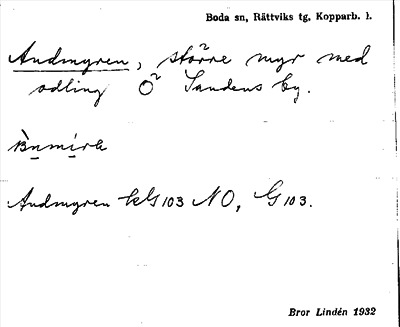 Boda sn, Rättviks tg, Kopparb. l.
Andmyren, större myr med
odling Ö Sandens by.
Andmyren kG103 NO, G103.
Bror Lindén 1932